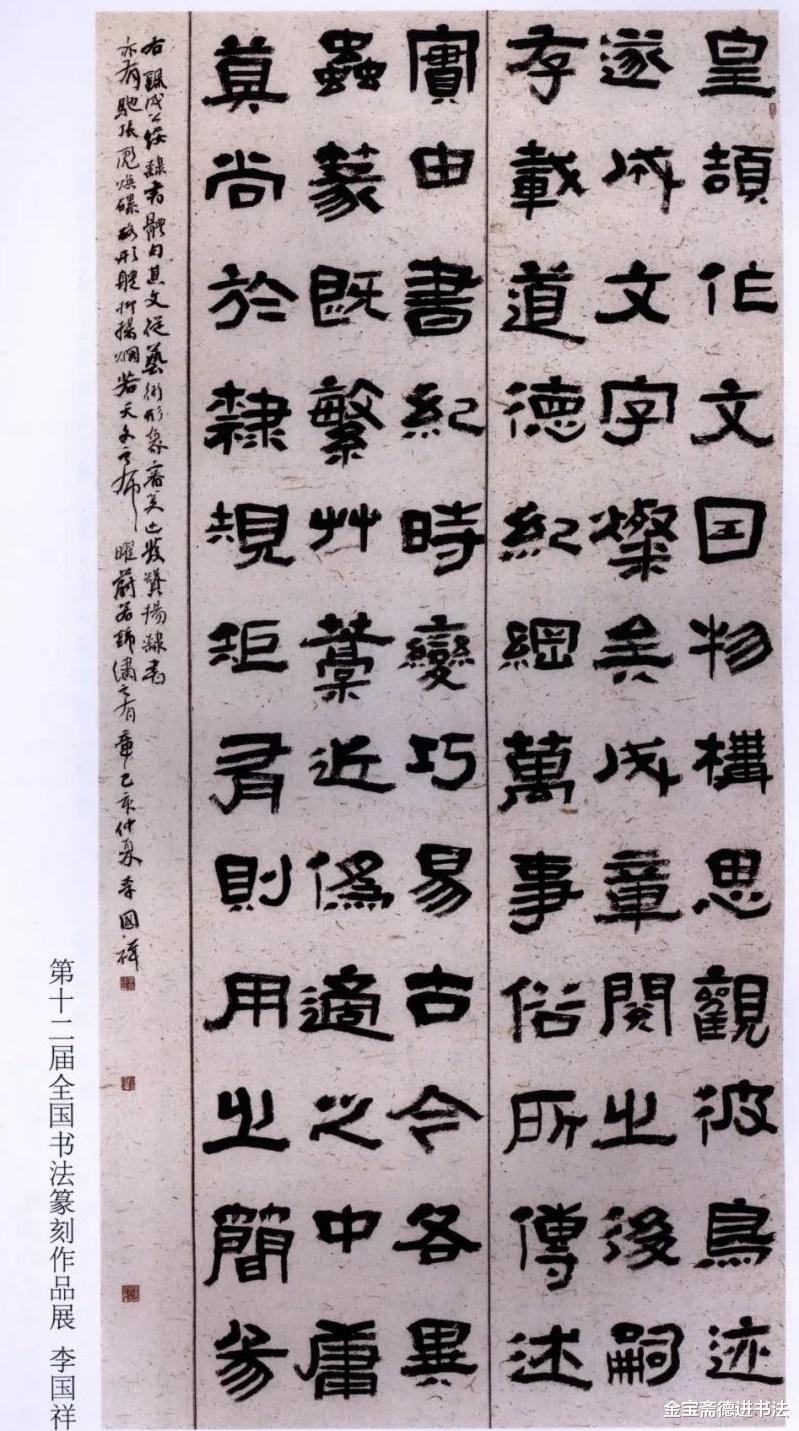 皇頡作文因物構思觀彼鳥迹
遂成文字燦矣成章閱之後嗣
存載道德紀綱萬事俗所傳述
實由書紀時變巧易古今各異
蟲篆既繁艸藁近僞適之中庸
莫尚於隸規矩有則用之簡易
右録成公綏隸書體句其文從藝術形象審美出發贊揚隸書
亦有馳張彪煥磥硌形體抑揚爛若天文之布曜蔚若錦繡之有章己亥仲夏李國祥
第十二届全国书法篆刻作品展 李国祥
金宝斋德进书法